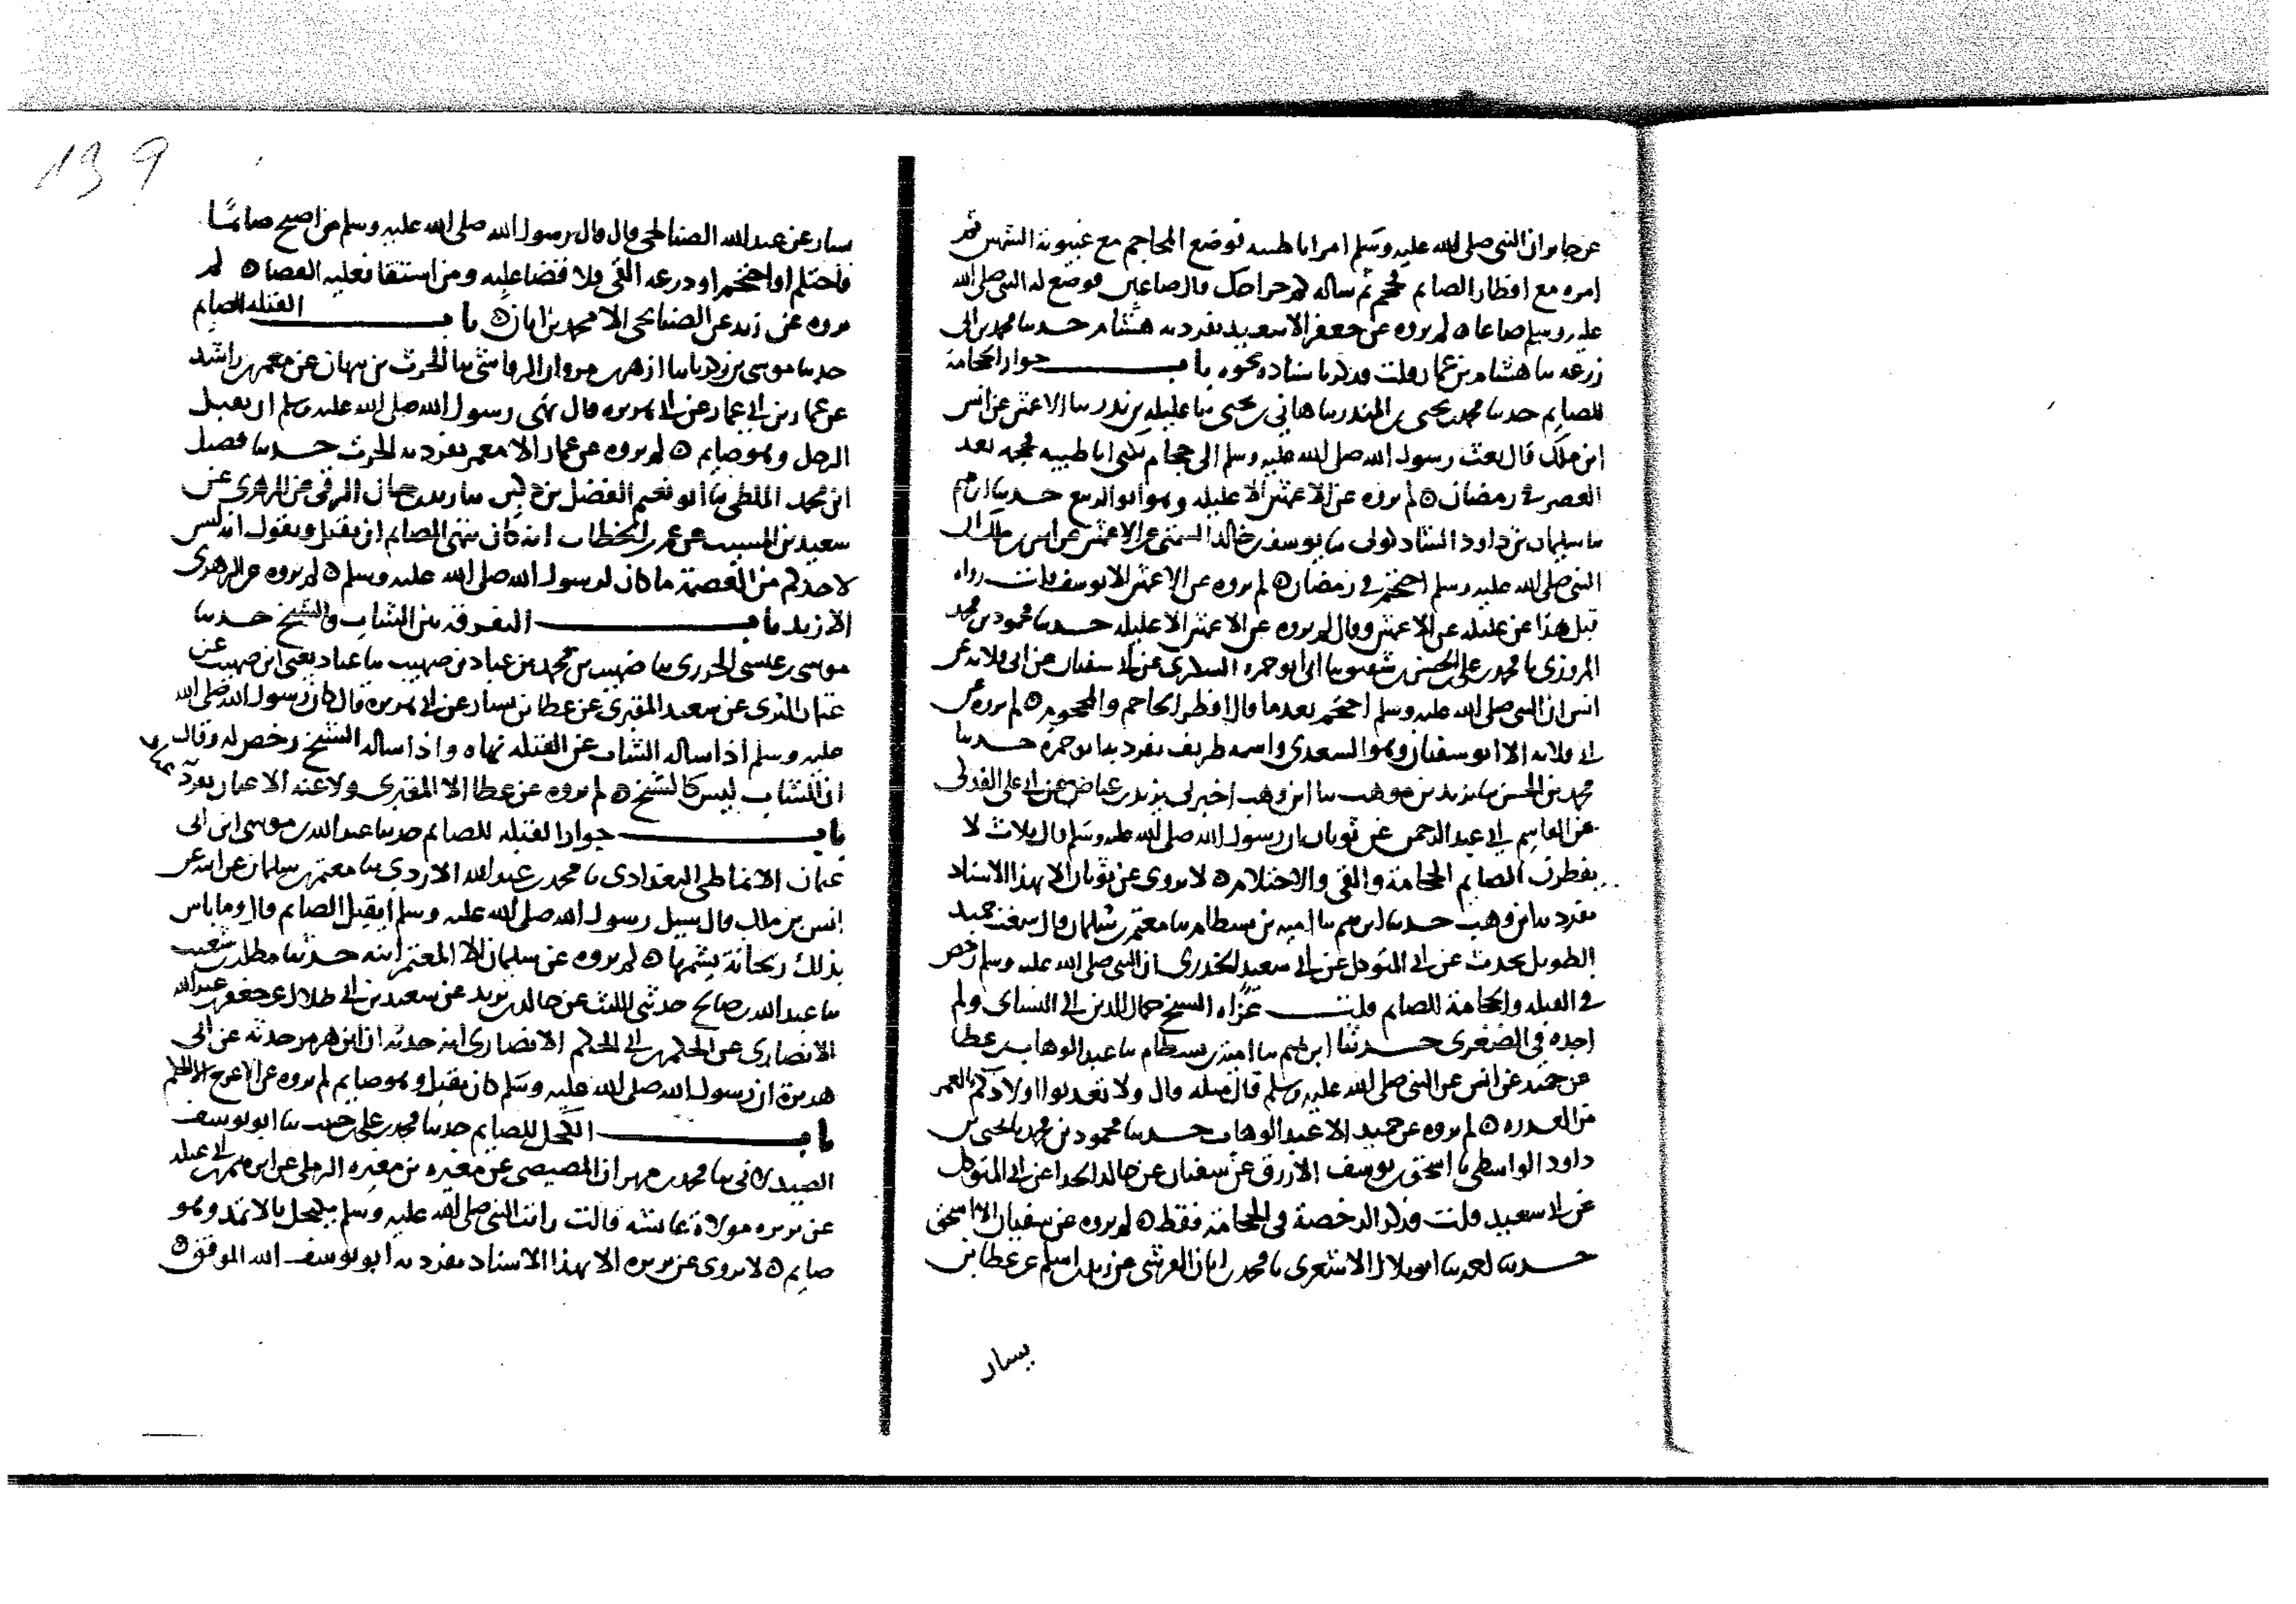 عن جابر ان النبي صلى الله عليه وسلم امر ابا طيبة فوضع المحاجم مع غيبوبة الشمس ثم
امره مع افطار الصايم فحجمه ثم ساله كم خراجك قال صاعين فوضع له النبي صلى الله
عليه وسلم صاعا ه لم يروه عن جعفر الا سعيد تفرد به هشام حدثنا محمد بن ابي
زرعه ثنا هشام بن عمار قلت فذكر باسناده نحوه باب جواز الحجامة
للصايم حدثنا محمد بن يحيى بن المنذر ثنا هاني بن يحيى ثنا
الاعمش عن انس
ابن ملك قال بعث رسول الله صلى الله عليه وسلم الى حجام يكنى ابا طيبه فحجمه بعد
العصر في رمضان ه لم يروه عن الاعمش الا وهو ابو الربيع حدثنا ابرهيم
ثنا سليمان بن داود الشاذكوني ثنا يوسف بن خالد السمتي عن الاعمش عن انس بن ملك ان
النبي صلى الله عليه وسلم احتجم في رمضان ه لم يروه عن الاعمش الا يوسف قلت رواه
قبل هذا عن عن الاعمش وقال لم يروه عن الاعمش الا حدثنا محمود بن محمد
المروزي ثنا محمد بن علي بن الحسن بن شقيق ثنا ابي ثنا ابو حمزه السكري عن ابي سفيان عن ابي قلابه عن
انس ان النبي صلى الله عليه وسلم احتجم بعدما قال افطر الحاجم والمحجوم ه لم يروه عن
ابي قلابه الا ابو سفيان وهو السعدي واسمه طريف تفرد به ابو حمزة حدثنا
محمد بن الحسن ثنا يزيد بن موهب ثنا ابن وهب اخبرني يزيد بن عياض عن ابي علي
عن القاسم ابي عبد الرحمن عن ثوبان ان رسول الله صلى الله عليه وسلم قال ثلاث لا
يفطرن الصايم الحجامة والقي والاحتلام ه لا يروى عن ثوبان الا بهذا الاسناد
تفرد به ابن وهب حدثنا ابرهيم ثنا امية بن بسطام ثنا معتمر بن سليمان قال سمعت حميد
الطويل يحدث عن ابي المتوكل عن ابي سعيد الخدري ان النبي صلى الله عليه وسلم رخص
في القبله والحجامة للصايم قلت عزاه الشيخ جمال الدين الى النساي ولم
اجده في الصغرى حدثنا ابرهيم ثنا امية بن بسطام ثنا عبد الوهاب بن عطا
عن حميد عن انس عن النبي صلى الله عليه وسلم قال مثله قال ولا تعذبوا اولادكم بالغمز
من العذره ه لم يروه عن حميد الا عبد الوهاب حدثنا محمود بن محمد ثنا يحيى بن
داود الواسطي ثنا اسحق بن يوسف الازرق عن سفيان عن خالد الحذا عن ابي المتوكل
عن ابي سعيد قلت فذكر الرخصة في الحجامة فقط ه لم يروه عن سفيان الا اسحق
حدثنا ثنا ابو بلال الاشعري ثنا محمد بن ابان القرشي عن زيد بن اسلم عن عطا بن
يسار
139
يسار عن عبد الله الصنابحي قال قال رسول الله صلى الله عليه وسلم من اصبح صايما
فاحتلم او احتجم او ذرعه القي فلا قضا عليه ومن استقا فعليه القضا ه لم
يروه عن زيد عن الصنابحي الا محمد بن ابان ه باب القبله للصايم
حدثنا موسى بن زكريا ثنا ازهر بن مروان الرقاشي ثنا الحرث بن نبهان عن معمر بن راشد
عن عمار بن ابي عمار عن ابي هريره قال نهى رسول الله صلى الله عليه وسلم ان يقبل
الرجل وهو صايم ه لم يروه عن عمار الا معمر تفرد به الحرث حدثنا فضيل
ابن محمد الملطي ثنا ابو نعيم الفضل بن دكين ثنا زيد بن حبان الرقي عن الزهري عن
سعيد بن المسيب عن عمر بن الخطاب انه كان ينهى الصايم ان يقبل ويقول انه ليس
لاحدكم من العصمة ما كان لرسول الله صلى الله عليه وسلم ه لم يروه عن الزهري
الا زيد باب التفرقة بين الشاب والشيخ حدثنا
موسى بن عيسى الجزري ثنا صهيب بن محمد بن عباد بن صهيب ثنا عباد يعني ابن صهيب عن
عثمان البري عن سعيد المقبري عن عطا بن يسار عن ابي هريرة قال كان رسول الله صلى الله
عليه وسلم اذا ساله الشاب عن القبله نهاه واذا ساله الشيخ رخص له وقال
ان الشاب ليس كالشيخ ه لم يروه عن عطا الا المقبري ولا عنه الا عثمان تفرد
باب جواز القبله للصايم حدثنا عبد الله بن موسى ابن ابي
عثمان الانماطي البغدادي ثنا محمد بن عبد الله الازدي ثنا معتمر بن سليمان عن ابيه عن
انس بن ملك قال سيل رسول الله صلى الله عليه وسلم ايقبل الصايم قال وما باس
بذلك ريحانة يشمها ه لم يروه عن سليمان الا المعتمر ابنه حدثنا مطلب بن شعيب
ثنا عبد الله بن صالح حدثني الليث عن خالد بن يزيد عن سعيد بن ابي هلال عن جعفر بن عبد الله
الانصاري عن الحكم الانصاري انه حدثه ان ابن هرمز حدثه عن ابي
هريرة ان رسول الله صلى الله عليه وسلم كان يقبل وهو صايم لم يروه عن الاعرج الا الحكم
باب الكحل للصايم حدثنا محمد بن علي بن حبيب ثنا ابو يوسف
الصيدلاني ثنا محمد بن مهران المصيصي عن مغيره بن مغيره الرملي عن ابرهيم بن ابي عبله
عن بريره مولاة عايشه قالت رايت النبي صلى الله عليه وسلم يكتحل بالاثمد وهو
صايم ه لا يروى عن بريره الا بهذا الاسناد تفرد به ابو يوسف الله الموفق ه